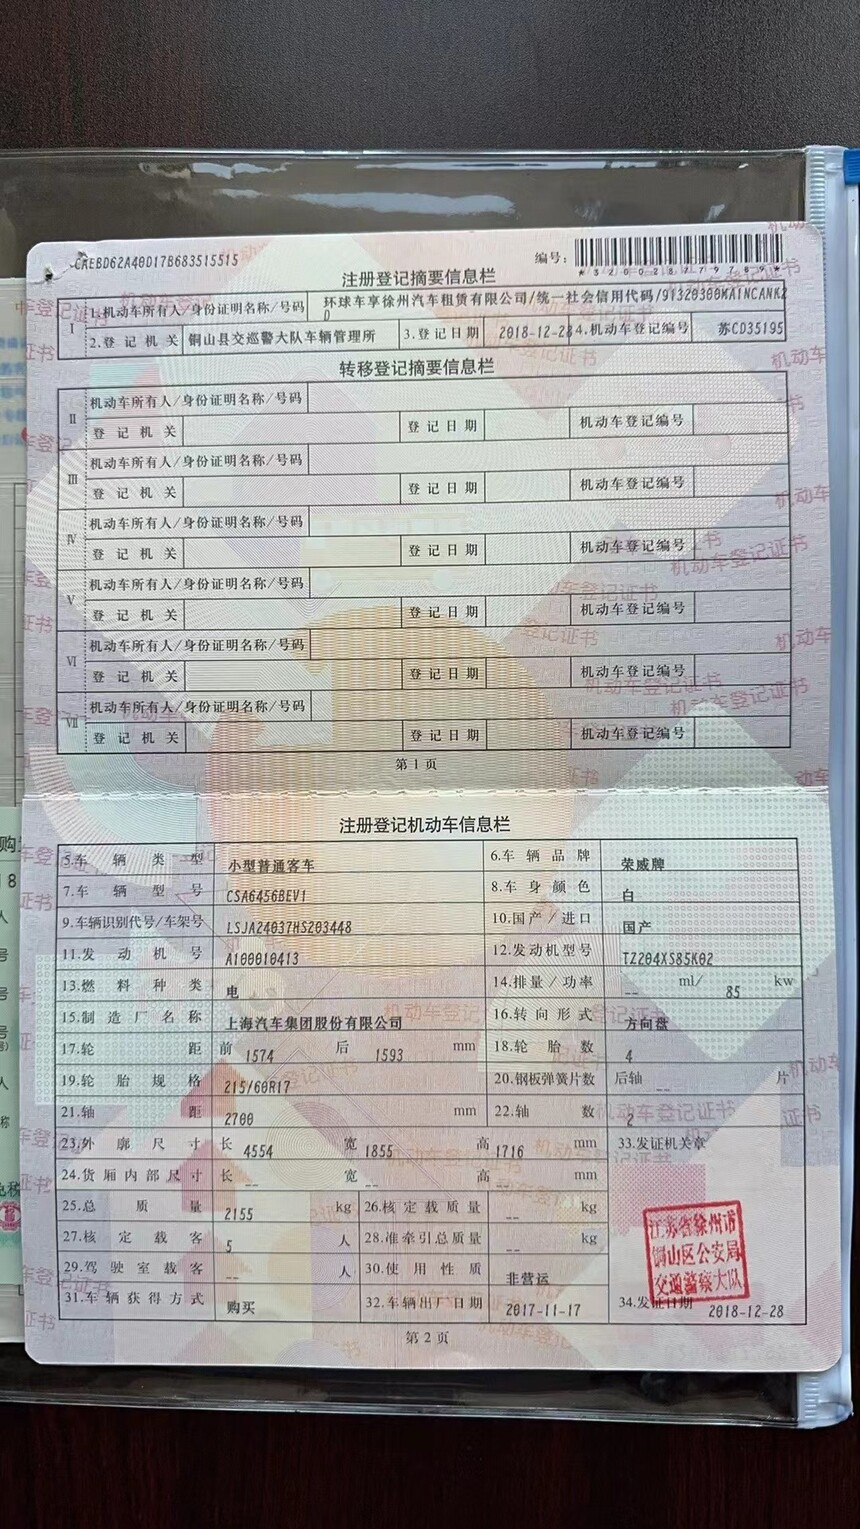 CAEBD62A40D17B683515515
编号:
*320028779789*
注册登记摘要信息栏
I 1.机动车所有人/身份证明名称/号码 环球车享徐州汽车租赁有限公司/统一社会信用代码/91320300MA1NCANK2D
2.登记机关 铜山县交巡警大队车辆管理所 3.登记日期 2018-12-28 4.机动车登记编号 苏CD35195
转移登记摘要信息栏
II 机动车所有人/身份证明名称/号码
登记机关 登记日期 机动车登记编号
III 机动车所有人/身份证明名称/号码
登记机关 登记日期 机动车登记编号
IV 机动车所有人/身份证明名称/号码
登记机关 登记日期 机动车登记编号
V 机动车所有人/身份证明名称/号码
登记机关 登记日期 机动车登记编号
VI 机动车所有人/身份证明名称/号码
登记机关 登记日期 机动车登记编号
VII 机动车所有人/身份证明名称/号码
登记机关 登记日期 机动车登记编号
第1页
注册登记机动车信息栏
5.车辆类型 小型普通客车 6.车辆品牌 荣威牌
7.车辆型号 CSA6456BEV1 8.车身颜色 白
9.车辆识别代号/车架号 LSJA24037HS203448 10.国产/进口 国产
11.发动机号 A100010413 12.发动机型号 TZ204XS85K02
13.燃料种类 电 14.排量/功率 -- ml/ 85 kw
15.制造厂名称 上海汽车集团股份有限公司 16.转向形式 方向盘
17.轮距 前 1574 后 1593 mm 18.轮胎数 4
19.轮胎规格 215/60R17 20.钢板弹簧片数 后轴 -- 片
21.轴距 2700 mm 22.轴数 2
23.外廓尺寸 长 4554 宽 1855 高 1716 mm 33.发证机关章
24.货厢内部尺寸 长 -- 宽 -- 高 -- mm
25.总质量 2155 kg 26.核定载质量 -- kg
27.核定载客 5 人 28.准牵引总质量 -- kg
29.驾驶室载客 -- 人 30.使用性质 非营运
31.车辆获得方式 购买 32.车辆出厂日期 2017-11-17 34.发证日期 2018-12-28
江苏省徐州市
铜山区公安局
交通警察大队
第2页